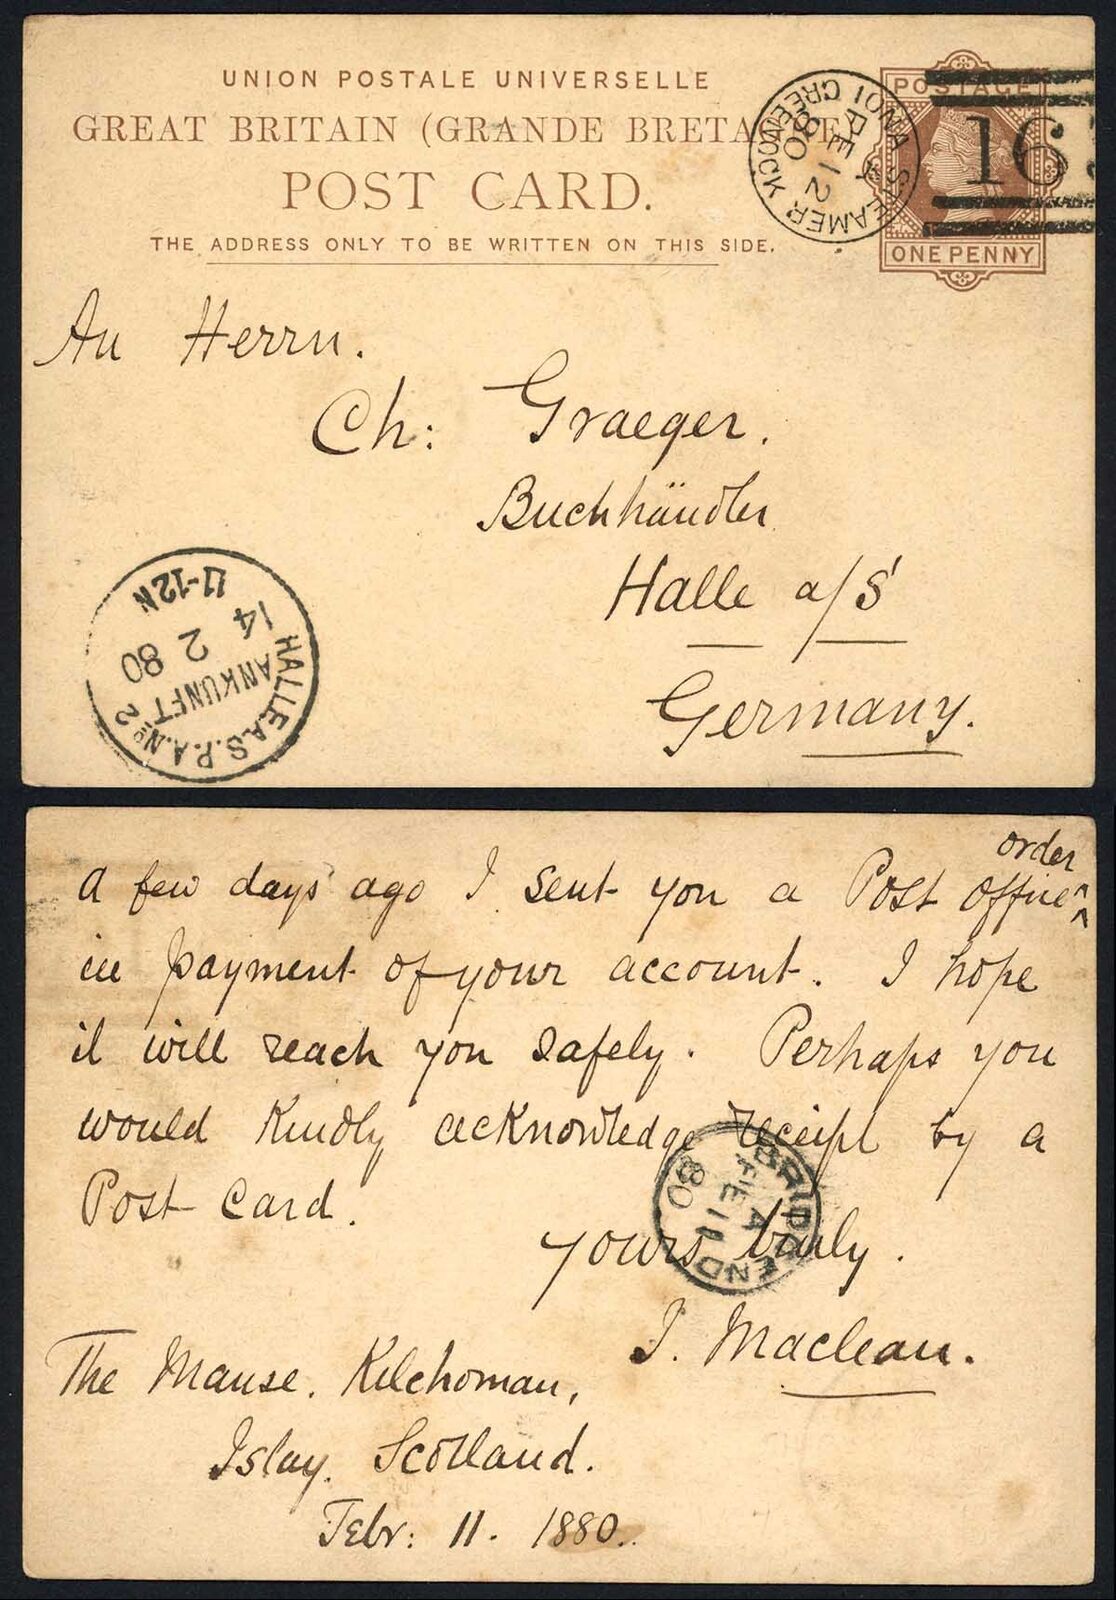 UNION POSTALE UNIVERSELLE
GREAT BRITAIN (GRANDE BRETAGNE)
POST CARD.
THE ADDRESS ONLY TO BE WRITTEN ON THIS SIDE.
POSTAGE
ONE PENNY
163
IONA STEAMER
GREENOCK
FE 12
80
An Herrn.
Ch: Graeger.
Buchhändler
Halle a/S
Germany.
HALLE A.S.P.A. No 2
ANKUNFT
14 2 80
11-12N
order
a few days ago I sent you a Post Office ^
in payment of your account. I hope
it will reach you safely. Perhaps you
would kindly acknowledge receipt by a
Post Card.
yours truly.
J. Maclean.
BRIDGEND
A
FE 11
80
The Manse. Kilchoman,
Islay. Scotland.
Febr: 11. 1880.